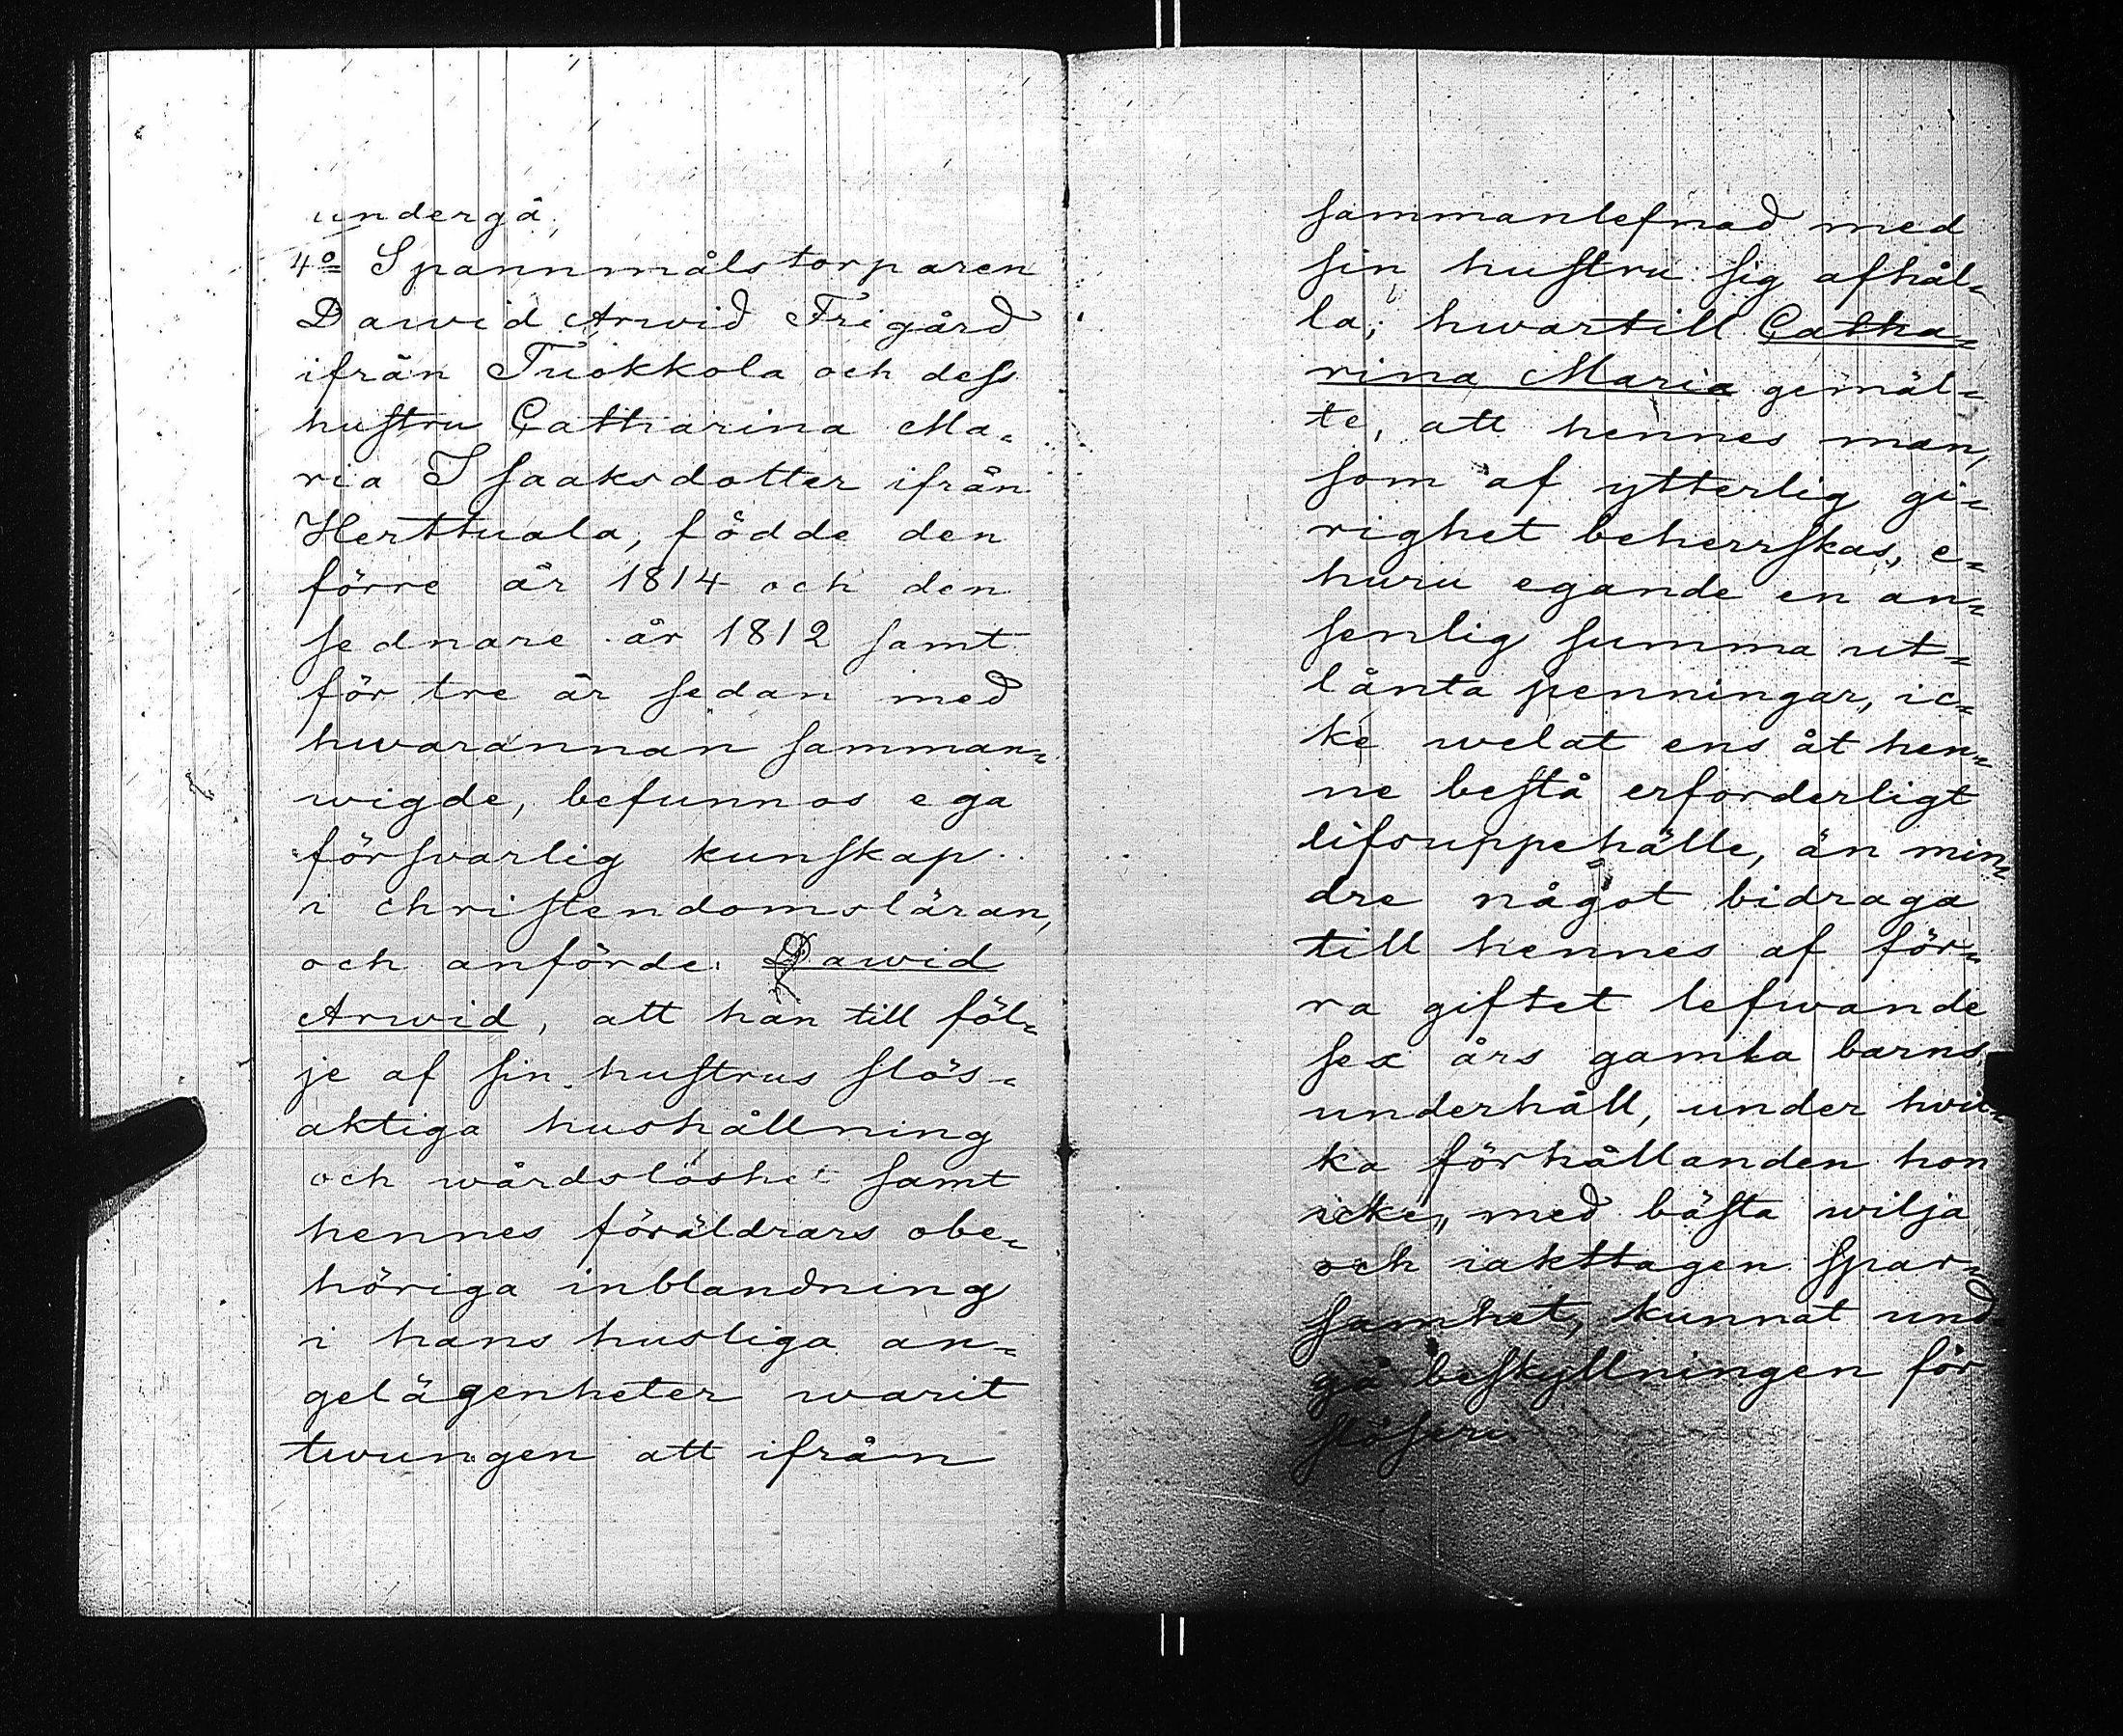 undergå.
4º Spannmålstorparen
Dawid Arwid Frigård
ifrån Tuokkola och dess
hustru Catharina Ma=
ria Isaaksdotter ifrån
Herttuala, födde den
förre år 1814 och den
sednare år 1812 samt
för tre år sedan med
hwarannan samman=
wigde, befunnos ega
försvarlig kunskap
i christendomsläran,
och anförde Dawid
Arwid, att han till föl=
je af sin hustrus slös=
aktiga hushållning
och wårdslöshet samt
hennes föräldrars obe=
höriga inblandning
i hans husliga an=
gelägenheter warit
twungen att ifrån
sammanlefnad med
sin hustru sig afhål=
la; hwartill Catha=
rina Maria gemäl=
te, att hennes man,
som af ytterlig gi=
righet beherrskas, e=
huru egande en an=
senlig summa ut=
lånta penningar, ic=
ke welat ens åt hen=
ne bestå erforderligt
lifsuppehälle, än min=
dre något bidraga
till hennes af för=
ra giftet lefwande
sex års gamla barns
underhåll, under hvil=
ka förhållanden hon
icke, med bästa wilja
och iakttagen spar=
samhet, kunnat und=
gå beskyllningen för
slöseri.